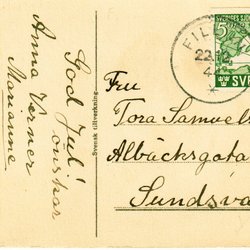 God Jul!
önskar
Anna Verner
Marianne
Svensk tillverkning
Fru
Tora Samuels
Albäcksgata
Sundsva
FIL
22.
4
5
SVERIGES
SVE